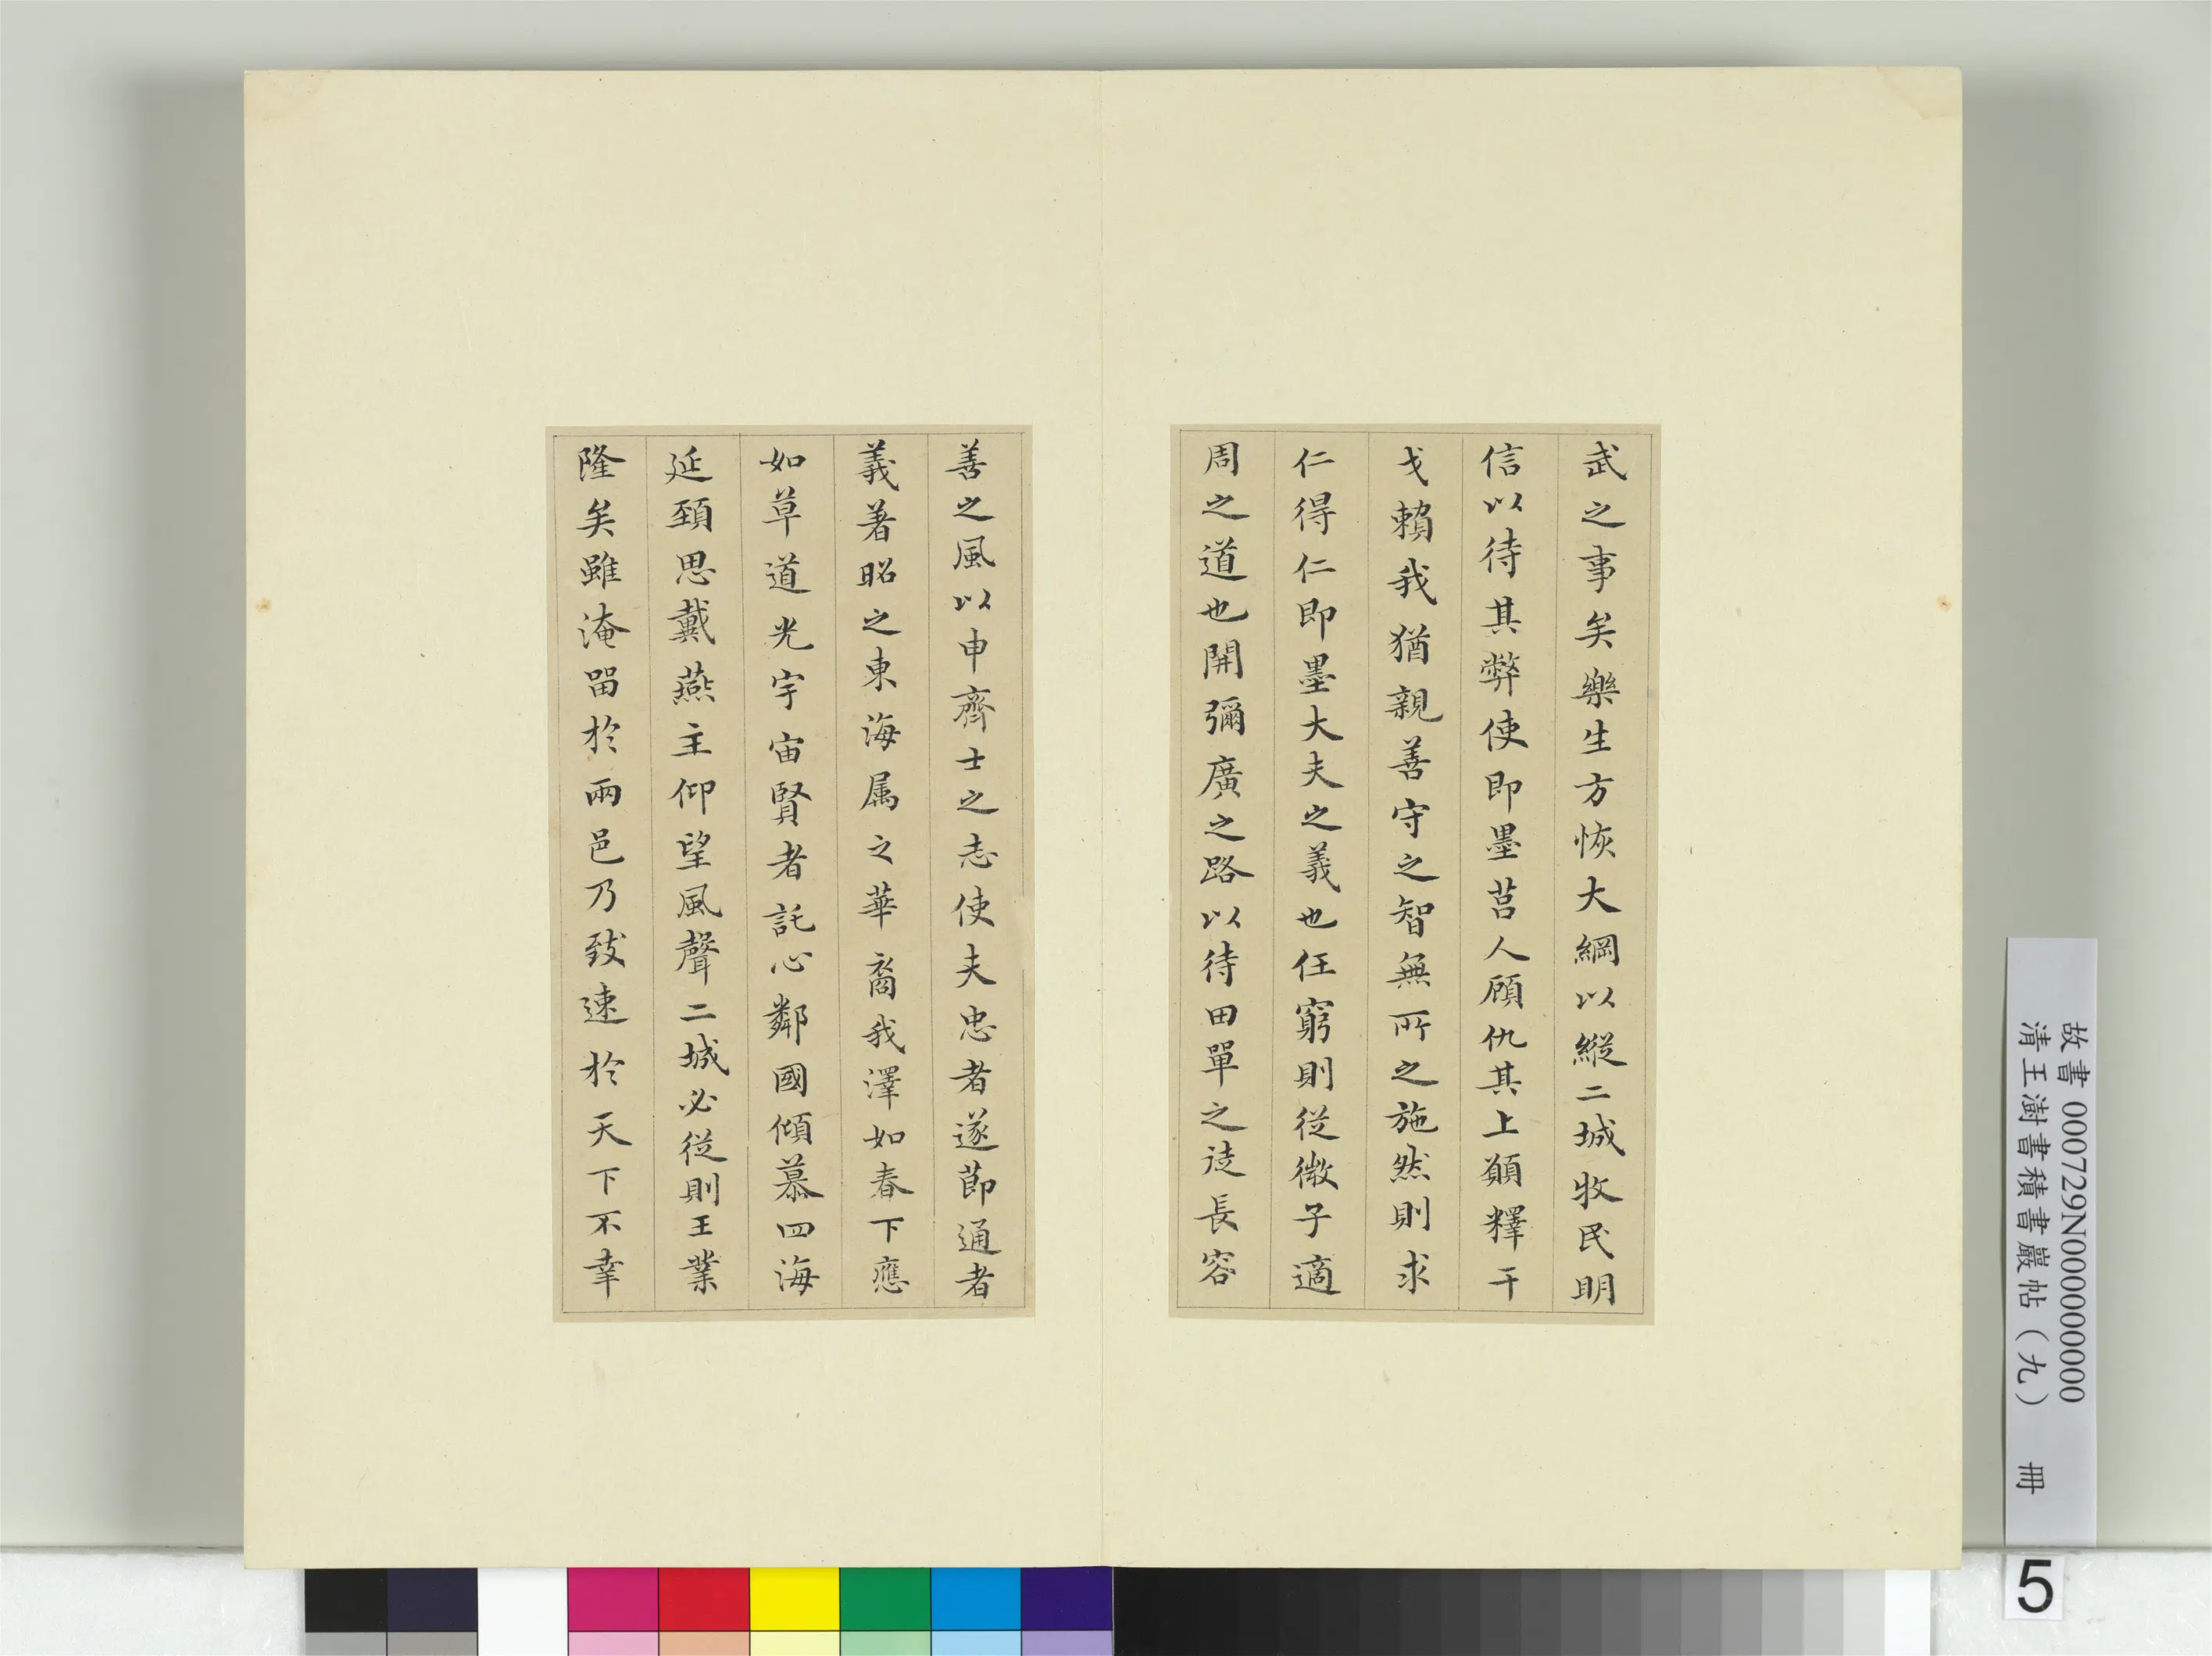 武之事矣樂生方恢大綱以縱二城牧民明
信以待其弊使即墨莒人顧仇其上願釋干
戈賴我猶親善守之智無所之施然則求
仁得仁即墨大夫之義也任窮則從微子適
周之道也開彌廣之路以待田單之徒長容
善之風以申齊士之志使夫忠者遂節通者
義著昭之東海属之華裔我澤如春下應
如草道光宇宙賢者託心鄰國傾慕四海
延頚思戴燕主仰望風聲二城必從則王業
隆矣雖淹留於兩邑乃致速於天下不幸
故書 000729N000000000
清王澍書積書巖帖（九） 冊
5